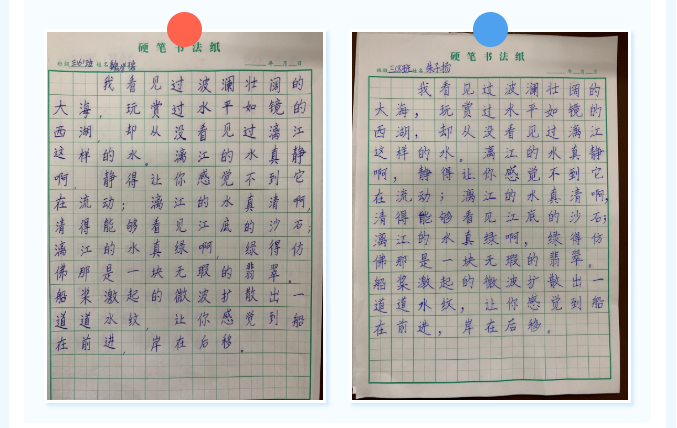 硬笔书法纸
班级 姓名
年 月 日
我看见过波澜壮阔的
大海，玩赏过水平如镜的
西湖，却从没看见过漓江
这样的水。漓江的水真静
啊，静得让你感觉不到它
在流动；漓江的水真清啊，
清得能够看见江底的沙石；
漓江的水真绿啊，绿得仿
佛那是一块无瑕的翡翠。
船桨激起的微波扩散出一
道道水纹，让你感觉到船
在前进，岸在后移。
硬笔书法纸
班级 姓名 朱子杨
年 月 日
我看见过波澜壮阔的
大海，玩赏过水平如镜的
西湖，却从没看见过漓江
这样的水。漓江的水真静
啊，静得让你感觉不到它
在流动；漓江的水真清啊，
清得能够看见江底的沙石；
漓江的水真绿啊，绿得仿
佛那是一块无瑕的翡翠。
船桨激起的微波扩散出一
道道水纹，让你感觉到船
在前进，岸在后移。